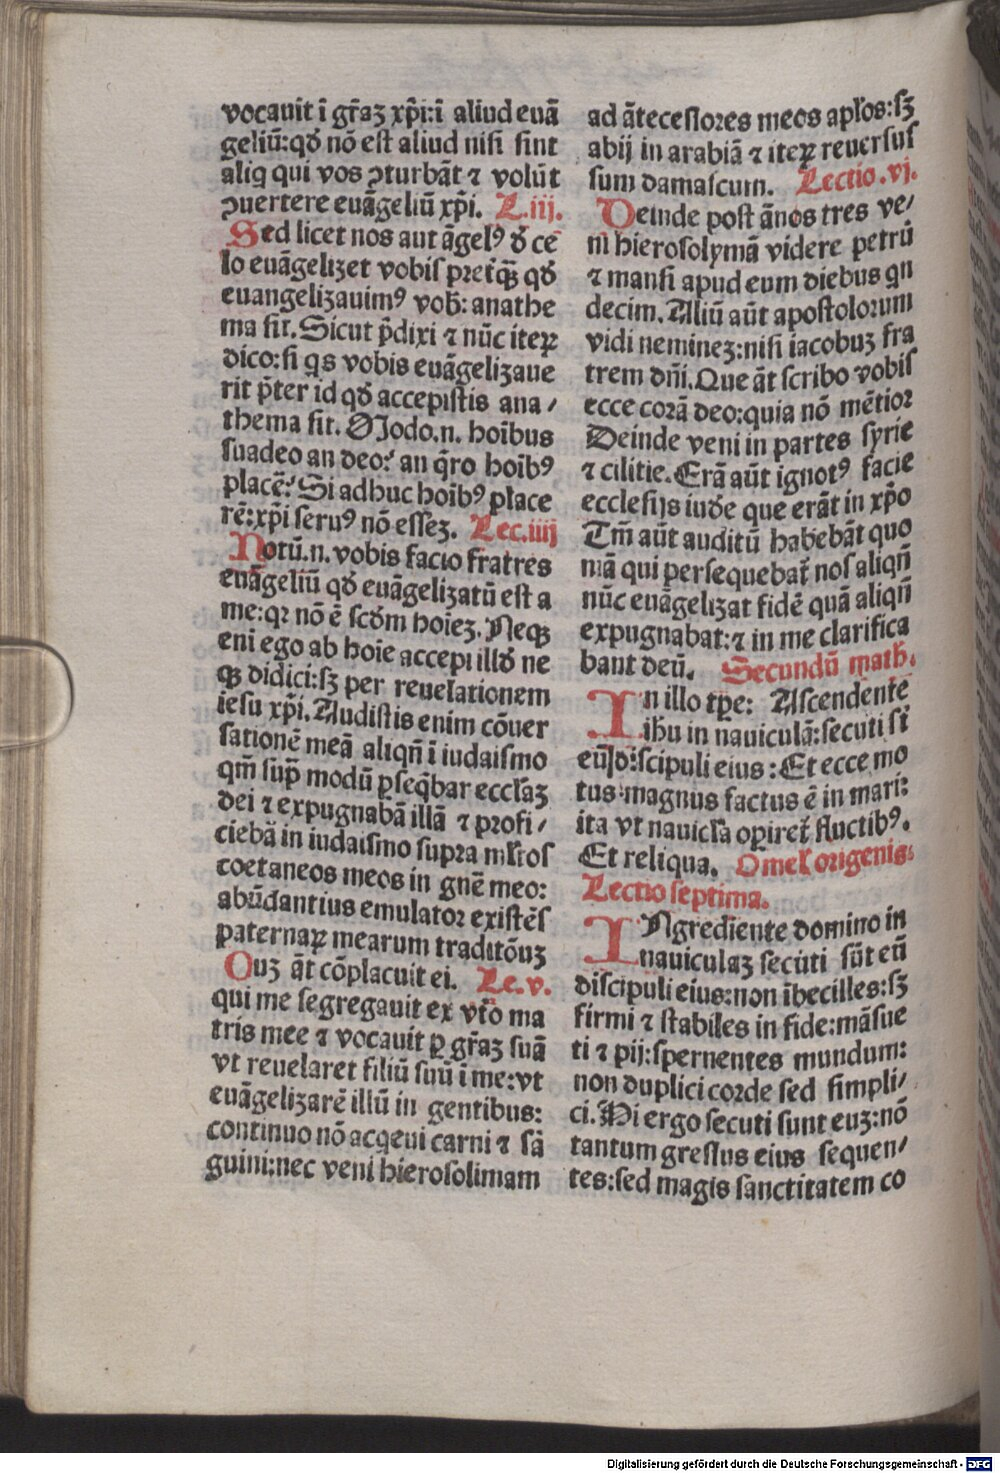 vocauit ī gr̄aꝫ xp̄i:ī aliud euā
geliū:qð nō est aliud nisi sint
aliq qui vos ꝯturbāt ⁊ volūt
ꝯuertere euāgeliū xp̄i. L.iij.
Sed licet nos aut āgelꝰ ð ce
lo euāgelizet vobis preťꝗȝ qð
euangelizauimꝰ vob̄: anathe
ma sit. Sicut p̄dixi ⁊ nūc iteꝝ
dico:si qs vobis euāgelizaue
rit p̄ter id qð accepistis ana/
thema sit. Modo.n. hoībus
suadeo an deo: an q̄ro hoībꝰ
placē: Si adhuc hoībꝰ place
rē:xp̄i seruꝰ nō esseꝫ. Lec.iiij
Notū.n. vobis facio fratres
euāgeliū qð euāgelizatū est a
me:qꝛ nō ē scðm hoieꝫ. Neqꝫ
eni ego ab hoie accepi illð ne
qꝫ didici:sꝫ per reuelationem
iesu xp̄i. Audistis enim cōuer
sationē meā aliqn̄ ī iudaismo
qm̄ sup̄ modū ꝑseq̄bar eccl̄aꝫ
dei ⁊ expugnabā illā ⁊ profi/
ciebā in iudaismo supra ml̄tos
coetaneos meos in gnē meo:
abūdantius emulator existēs
paternaꝝ mearum traditōuꝫ
Quꝫ āt cōplacuit ei. Le.v.
qui me segregauit ex vťo ma
tris mee ⁊ vocauit ꝑ gr̄aꝫ suā
vt reuelaret filiū suū ī me:vt
euāgelizarē illū in gentibus:
continuo nō acqeui carni ⁊ sā
guini:nec veni hierosolimam
ad ātecessores meos apl̄os:sꝫ
abij in arabiā ⁊ iteꝝ reuersus
sum damascum. Lectio.vj.
Deinde post ānos tres ve/
ni hierosolymā videre petrū
⁊ mansi apud eum diebus qn
decim. Aliū aūt apostolorum
vidi nemineꝫ:nisi iacobuꝫ fra
trem dn̄i. Que āt scribo vobis
ecce corā deo:quia nō mētior
Deinde veni in partes syrie
⁊ cilitie. Erā aūt ignotꝰ facie
ecclesijs iuðe que erāt in xp̄o
Tm̄ aūt auditū habebāt quo
niā qui persequebat̄ nos aliqn̄
nūc euāgelizat fidē quā aliqn̄
expugnabat:⁊ in me clarifica
bant deū. Secundū math̄.
In illo tꝑe: Ascendente
ihu in nauiculā:secuti st̄
eū ðiscipuli eius: Et ecce mo
tus magnus factus ē in mari:
ita vt nauicl̄a oꝑiret̄ fluctibꝰ.
Et reliqua. Omel̄ origenis:
Lectio septima.
INgrediente domino in
nauiculaꝫ secuti sūt eū
discipuli eius:non ībecilles:sꝫ
firmi ⁊ stabiles in fide:māsue
ti ⁊ pij:spernentes mundum:
non duplici corde sed simpli/
ci. Hi ergo secuti sunt euꝫ:nō
tantum gressus eius sequen/
tes:sed magis sanctitatem co
Digitalisierung gefördert durch die Deutsche Forschungsgemeinschaft - DFG